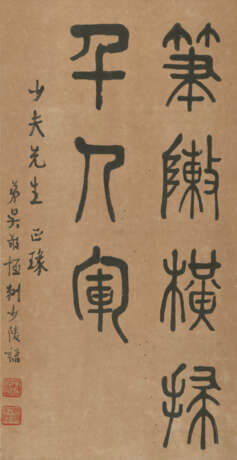 筆敶橫掃
千人軍
少夫先生 正瑑
弟吳敬恆 少陵語